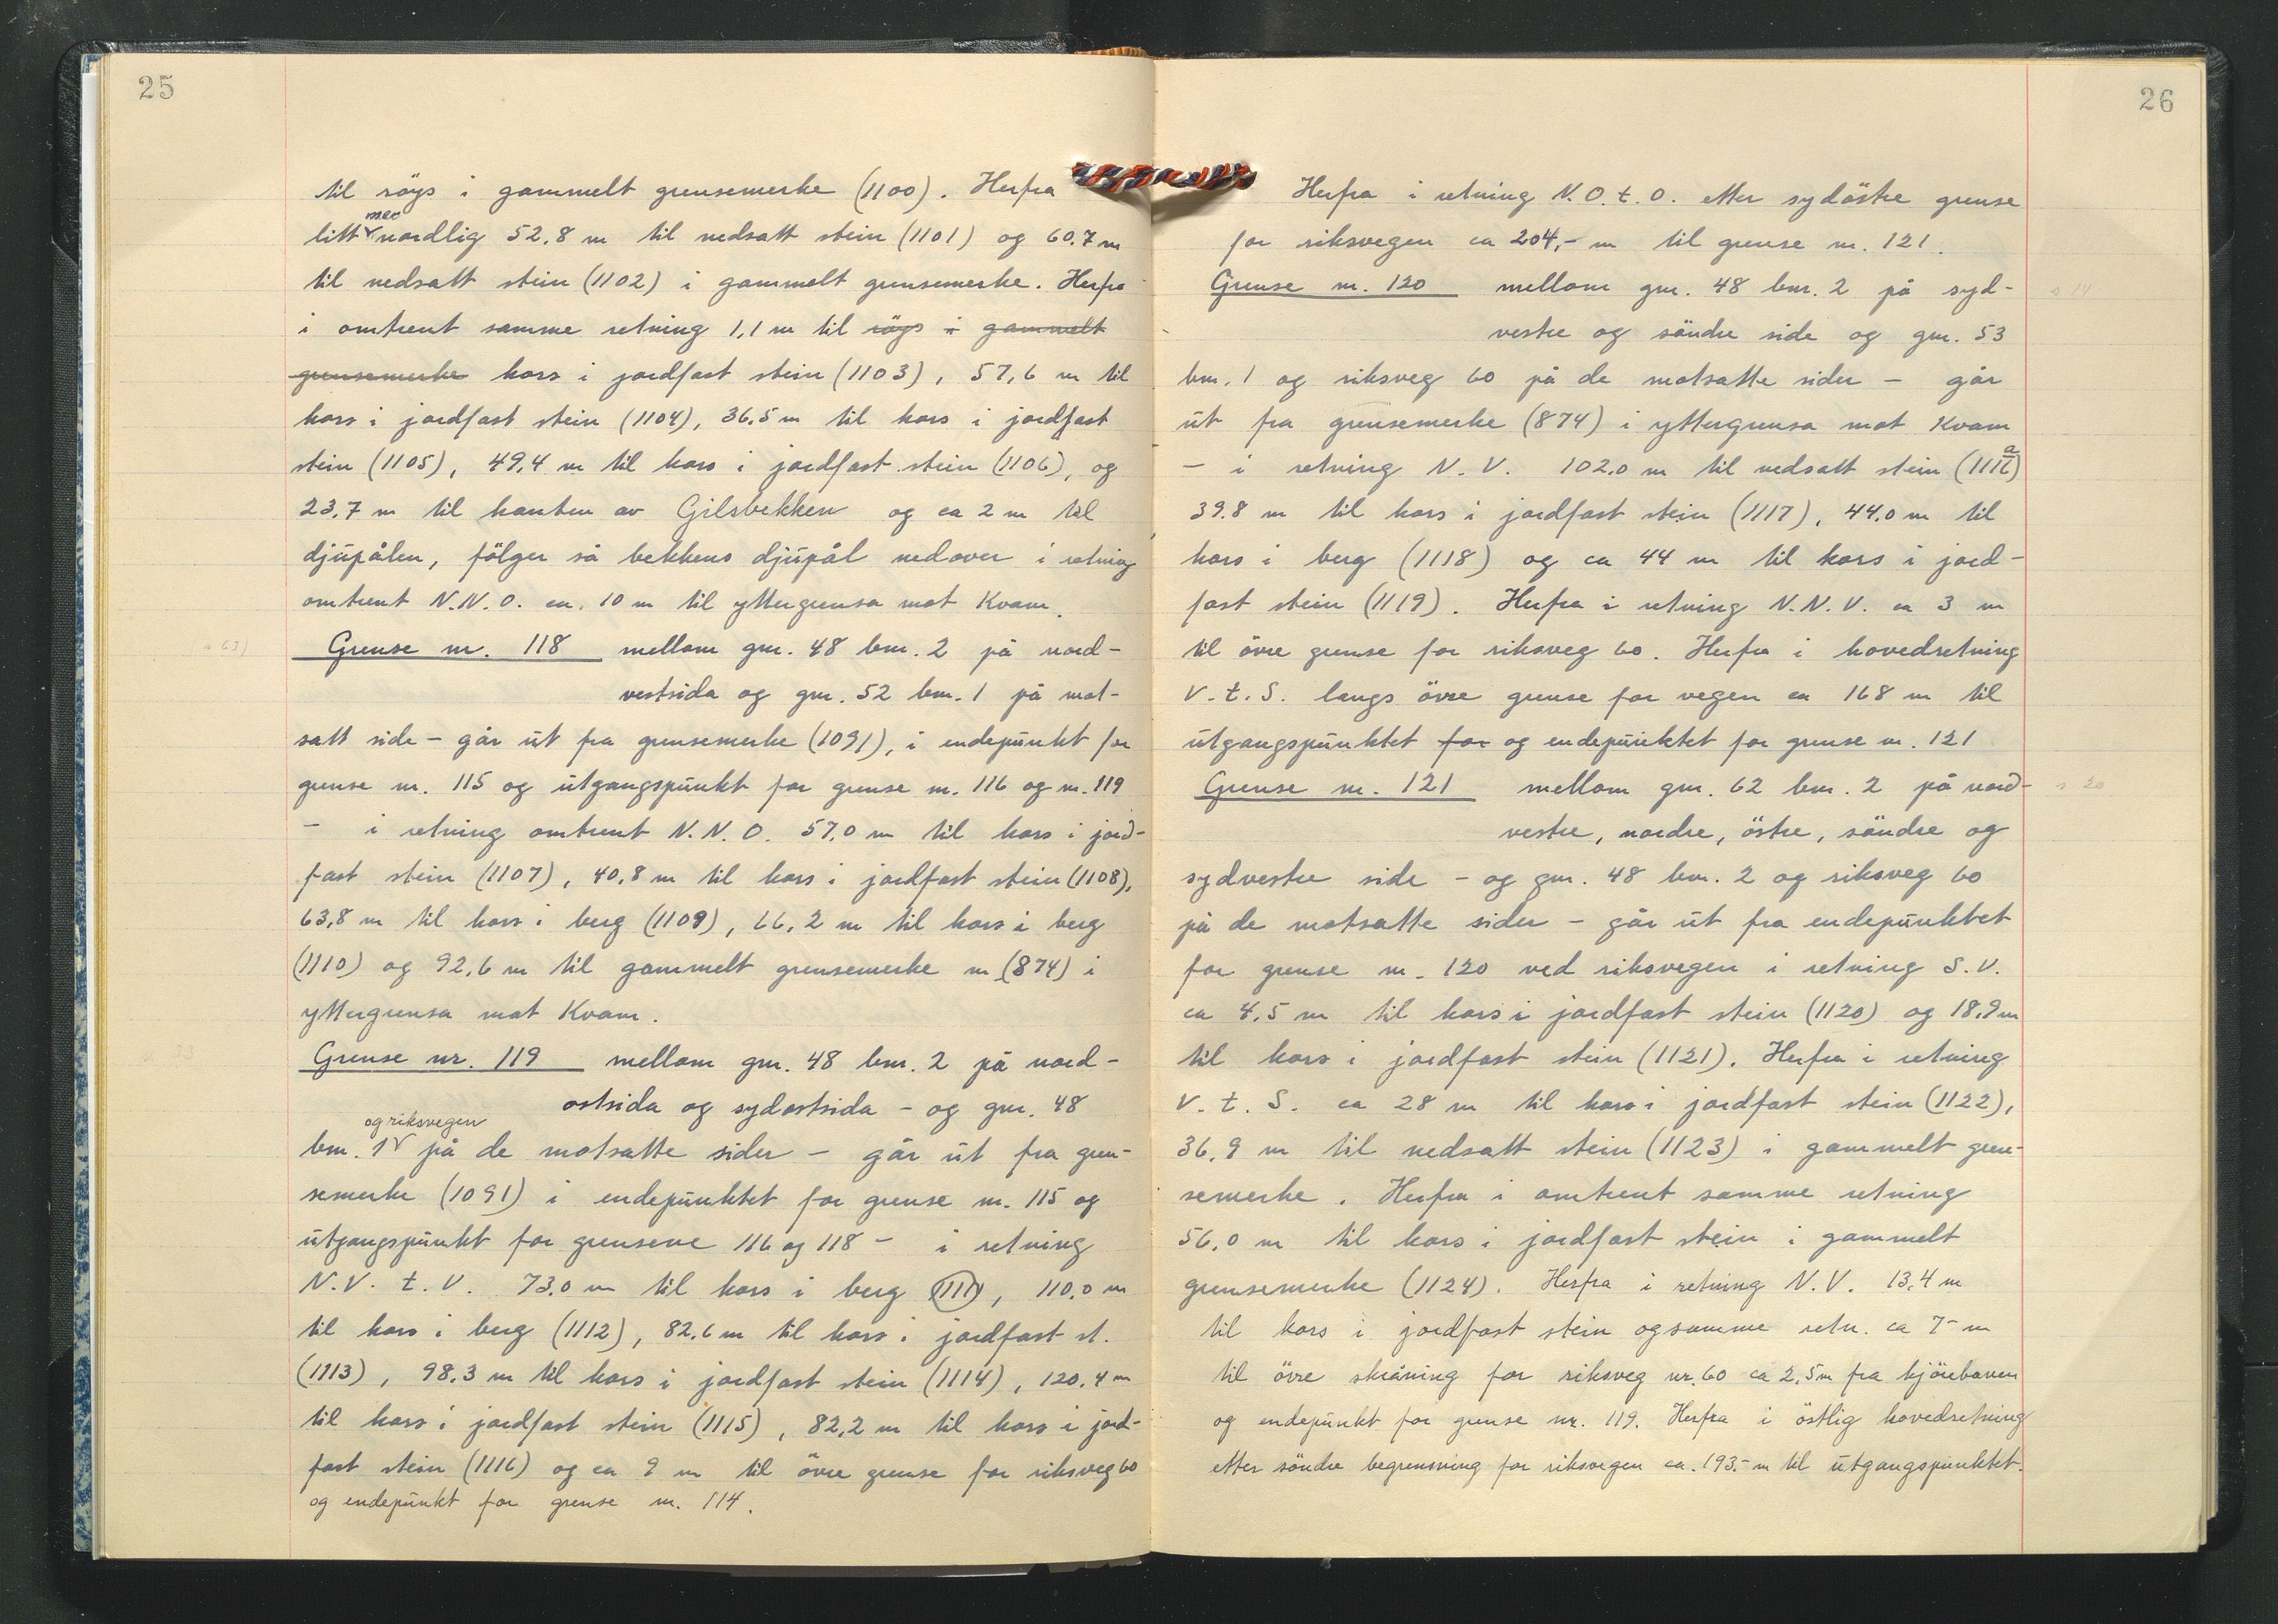 25
til röys i gammelt grensemerke (1100). Herfra
mer
litt nordlig 52,8 m til nedsatt stein (1101) og 60,7 m
til nedsatt stein (1102) i gammelt grensemerke. Herfra
i omtrent samme retning 1,1 m til röys i gammelt
grensemerke kors i jordfast stein (1103), 57,6 m til
kors i jordfast stein (1104), 36,5 m til kors i jordfast
stein (1105), 49,4 m til kors i jordfast stein (1106), og
23,7 m til kanten av Gilsbekken og ca 2 m til
djupålen, fölger så bekkens djupål nedover i retning
omtrent N.N.O. ca. 10 m til yttergrensa mot Kvam.
Grense nr. 118 mellom gnr. 48 bnr. 2 på nord-
vestsida og gnr. 52 bnr. 1 på mot-
satt side - går ut fra grensemerke (1091), i endepunkt for
grense nr. 115 og utgangspunkt for grense nr. 116 og nr. 119
- i retning omtrent N.N.O. 57,0 m til kors i jord-
fast stein (1107), 40,8 m til kors i jordfast stein (1108),
63,8 m til kors i berg (1109), 66,2 m til kors i berg
(1110) og 92,6 m til gammelt grensemerke nr (874) i
yttergrensa mot Kvam.
Grense nr. 119 mellom gnr. 48 bnr. 2 på nord-
ostsida og sydostsida - og gnr. 48
og riksvegen
bnr. 1 på de motsatte sider - går ut fra gren-
semerke (1091) i endepunktet for grense nr. 115 og
utgangspunkt for grensene 116 og 118 - i retning
N.V. t. V. 73,0 m til kors i berg (1111), 110,0 m
til kors i berg (1112), 82,6 m til kors i jordfast st.
(1113), 98,3 m til kors i jordfast stein (1114), 120,4 m
til kors i jordfast stein (1115), 82,2 m til kors i jord-
fast stein (1116) og ca 9 m til övre grense for riksveg 60
og endepunkt for grense nr. 114.
26
Herfra i retning N.O.t.O. etter sydöstre grense
for riksvegen ca 204,- m til grense nr. 121.
Grense nr. 120 mellom gnr. 48 bnr. 2 på syd-
vestre og söndre side og gnr. 53
bnr. 1 og riksveg 60 på de motsatte sider - går
ut fra grensemerke (874) i yttergrensa mot Kvam
- i retning N.V. 102,0 m til nedsatt stein (1116a)
39,8 m til kors i jordfast stein (1117), 44,0 m til
kors i berg (1118) og ca 44 m til kors i jord-
fast stein (1119). Herfra i retning N.N.V. ca 3 m
til övre grense for riksveg 60. Herfra i hovedretning
V.t.S. langs övre grense for vegen ca 168 m til
utgangspunktet for og endepunktet for grense nr. 121
Grense nr. 121 mellom gnr. 62 bnr. 2 på nord-
vestre, nordre, östre, söndre og
sydvestre side - og gnr. 48 bnr. 2 og riksveg 60
på de motsatte sider - går ut fra endepunktet
for grense nr. 120 ved riksvegen i retning S.V.
ca 4,5 m til kors i jordfast stein (1120) og 18,9 m
til kors i jordfast stein (1121). Herfra i retning
V.t.S. ca 28 m til kors i jordfast stein (1122),
36,9 m til nedsatt stein (1123) i gammelt gren-
semerke. Herfra i omtrent samme retning
56,0 m til kors i jordfast stein i gammelt
grensemerke (1124). Herfra i retning N.V. 13,4 m
til kors i jordfast stein og samme retn. ca 7- m
til övre skråning for riksveg nr. 60 ca 2,5 m fra kjörebanen
og endepunkt for grense nr. 119. Herfra i östlig hovedretning
etter söndre begrensning for riksvegen ca. 193,- m til utgangspunktet.